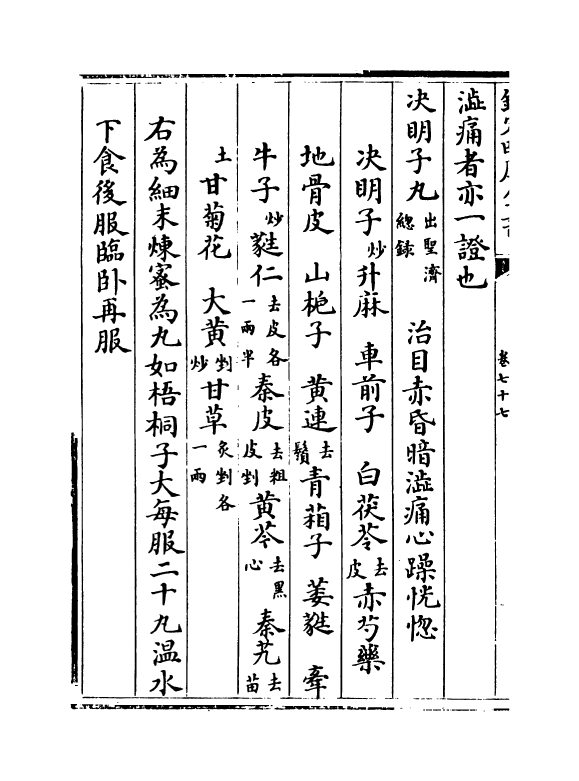 卷七十七
澁痛者亦一證也
决明子丸出聖濟總錄 治目赤昏暗澁痛心躁恍惚
决明子炒 升麻 車前子 白茯苓去皮 赤芍藥
地骨皮 山梔子 黄連去鬚 青葙子 萎蕤 牽
牛子炒 蕤仁去皮各一兩半 秦皮去粗皮剉 黄芩去黑心 秦艽去苗
土 甘菊花 大黄剉炒 甘草炙剉各一兩
右為細末煉蜜為丸如梧桐子大每服二十丸温水
下食後服臨卧再服